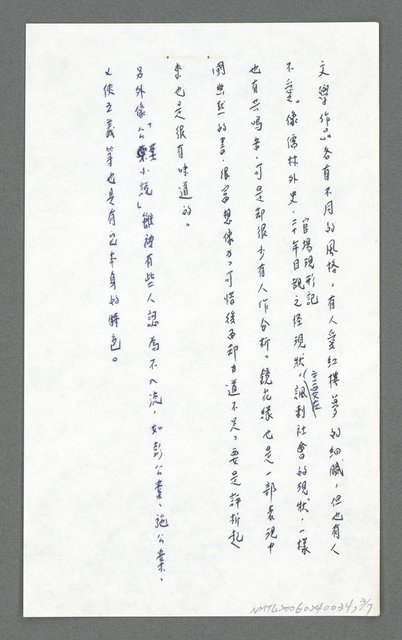 文學作品各有不同的風格，有人愛紅樓夢的細膩，但也有人
不愛。像儒林外史，官場現形記二十年目覩之怪現狀，主要在諷刺社會的現狀，一樣
也有共鳴者，可是却很少有人作分析。鏡花緣也是一部表現中
國思想的書，很富想像力，可惜後面却力道不足，要是評析起
來也是很有味道的。
另外像「公案小說」雖被有些人認為不入流，如彭公案、施公案、
七俠五義等也是有它本身的特色。
NMTL20060240034, 3/7